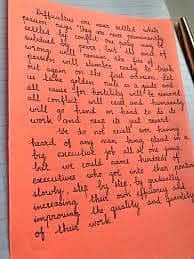 Difficulties are never settled while
passion rages. They are never permanently
settled by conflict. One party may be
subdued by power, but if and
wrong will remain, the fire of
passion will slumber ready to break
out again on the first occasion. Let
us take golden rule as a guide and
all cause for hostility will be removed
all conflict will cease and humanity
will go hand in hand to do its
work and reap its just reward.
We do not recall ever having
heard of any man being placed in a
big executive job all at one jump,
but we could name hundreds of
executives who got into their position
slowly, step by step, by gradually
increasing their own efficiency and
improving the quality and quantity
of their work.